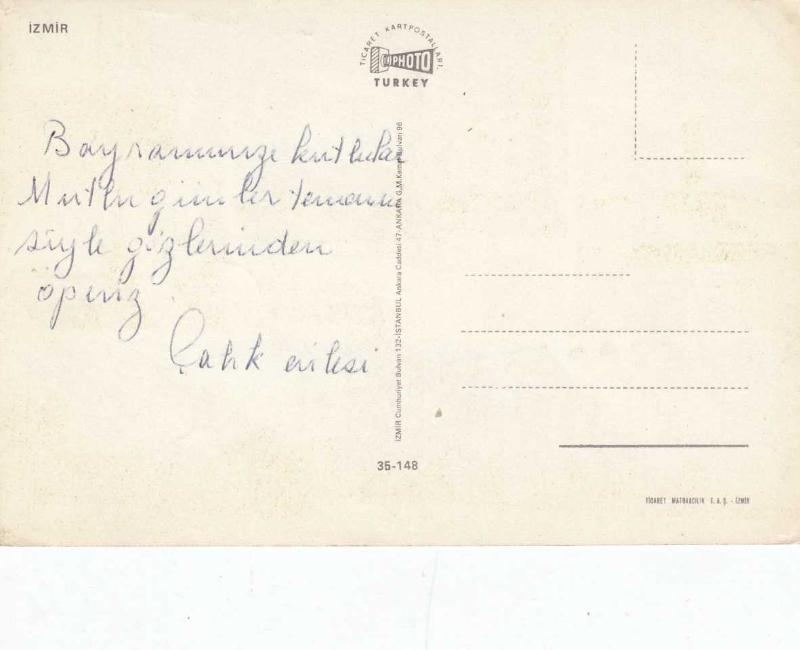 İZMİR
TİCARET KARTPOSTALLARI
PHOTO
TURKEY
Bayramınızı kutlular
Mutlu günler temenni
siyle gözlerinden
öperiz
Çalık ailesi
İZMİR Cumhuriyet Bulvarı 132-İSTANBUL Ankara Caddesi 47-ANKARA G.M.Kemal Bulvarı 96
35-148
TİCARET MATBAACILIK T.A.Ş. - İZMİR